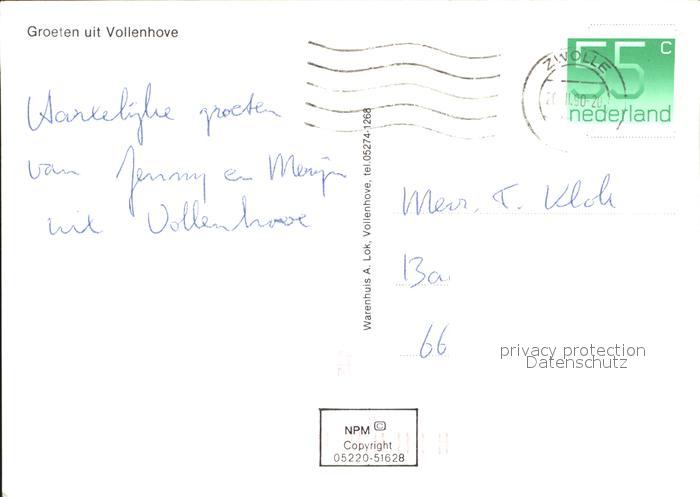 Groeten uit Vollenhove
55 C
nederland
ZWOLLE
Hartelijke groeten
van Jenny en Merijn
uit Vollenhove
Warenhuis A. Lok, Vollenhove, tel. 05274-1268
Mevr. T. Klok
Ba
66
privacy protection
Datenschutz
NPM ©
Copyright
05220-51628